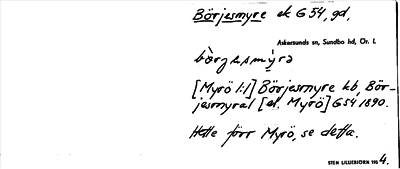 Börjesmyre ek G 54, gd,
Askersunds sn, Sundbo hd, Ör. l.
[Myrö 1:1] Börjesmyre kb, Bör-
jesmyral [el. Myrö] G 54 1890.
Hette förr Myrö, se detta.
STEN LILLIEBJÖRN 196 4.